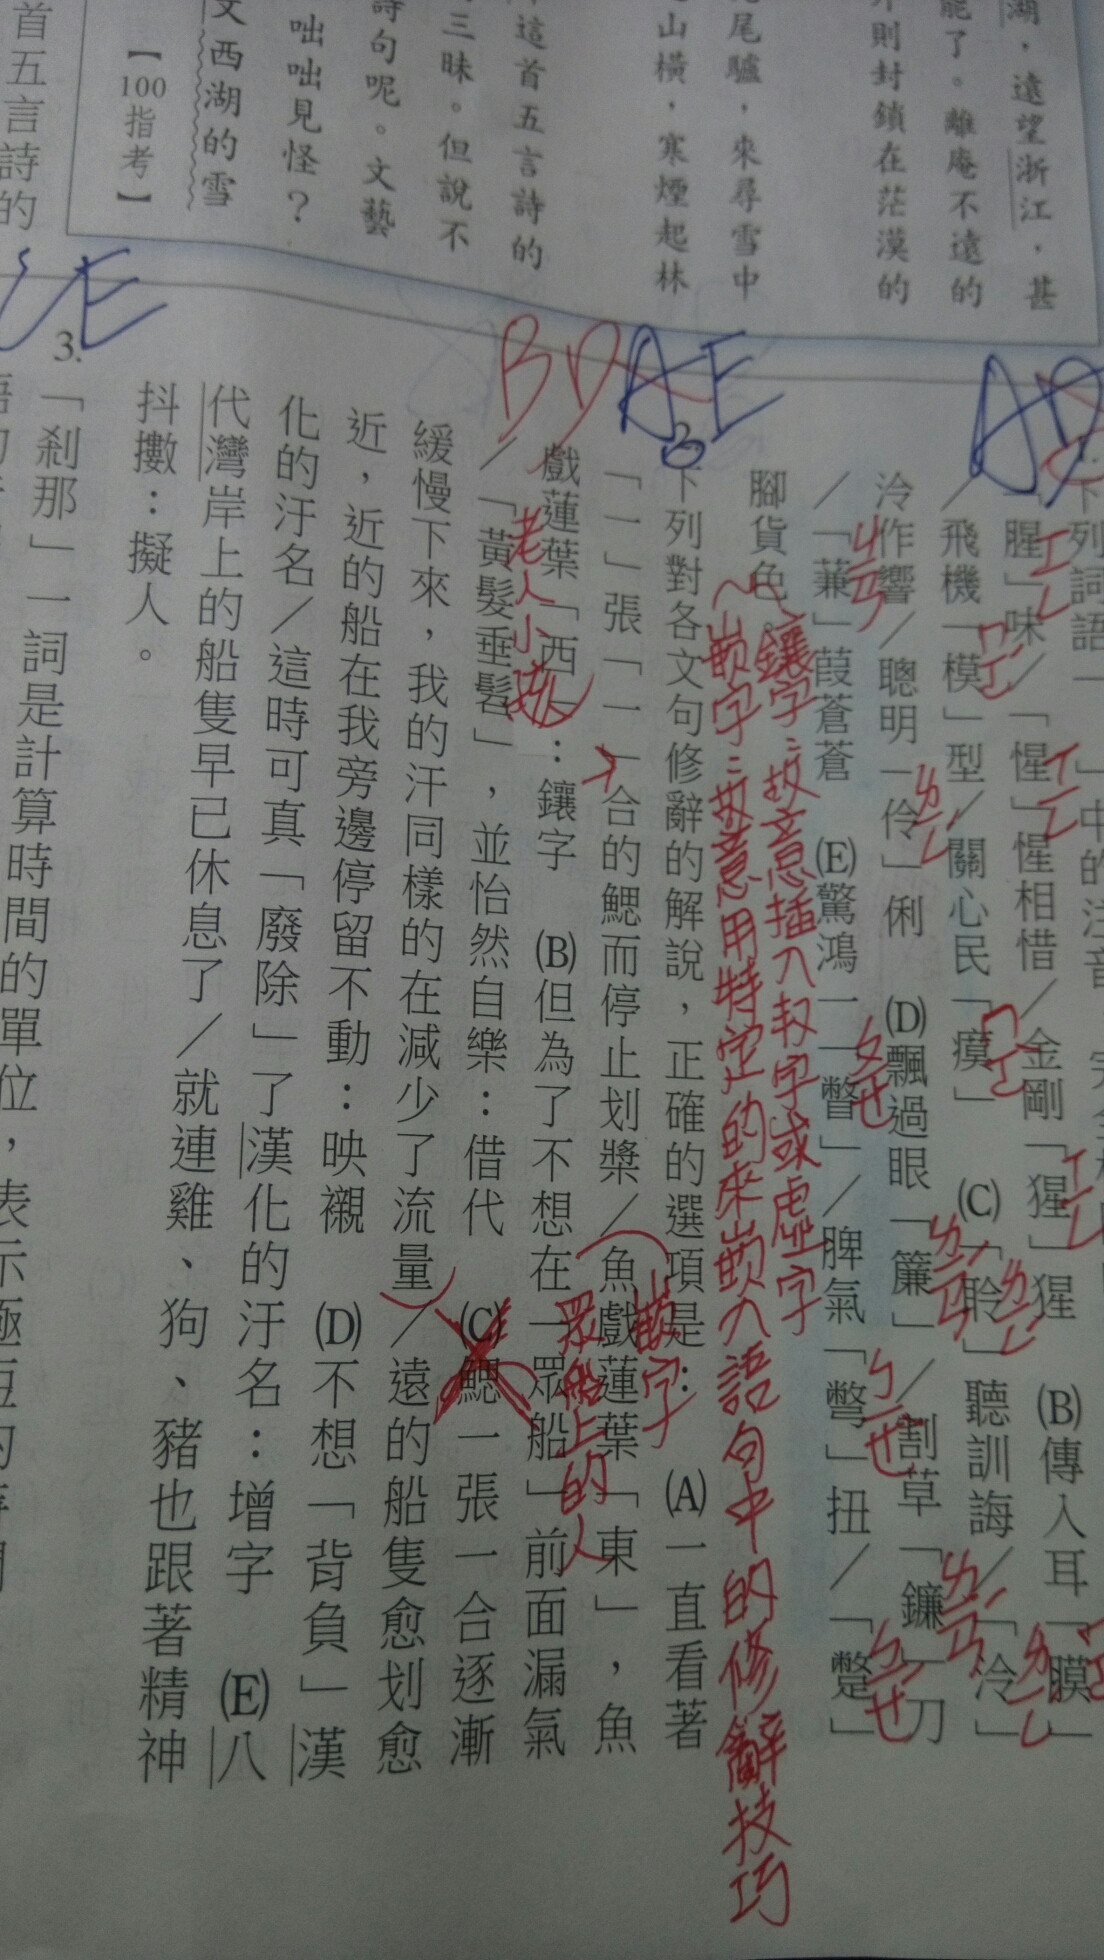 湖，遠望浙江，甚
能了。離庵不遠的
則封鎖在茫漠的
尾驢，來尋雪中
山橫，寒煙起林
這首五言詩的
三昧。但說不
詩句呢。文藝
咄咄見怪？
文西湖的雪
【100指考】
首五言詩的
AD
下列詞語「」中的注音
「腥」味／「惺」惺相惜／金剛「猩」猩 (B)傳入耳「膜」
ㄒㄧㄥ
ㄒㄧㄥ
ㄒㄧㄥ
／飛機「模」型／關心民「瘼」 (C)「聆」聽訓誨／「泠」
ㄇㄛˊ
ㄇㄛˋ
ㄌㄧㄥˊ
ㄌㄧㄥˊ
泠作響／聰明「伶」俐 (D)飄過眼「簾」／割草「鐮」刀
ㄌㄧㄥˊ
ㄌㄧㄢˊ
ㄌㄧㄢˊ
／「蒹」葭蒼蒼 (E)驚鴻一「瞥」／脾氣「彆」扭／「蹩」
ㄐㄧㄢ
ㄆㄧㄝ
ㄅㄧㄝˋ
ㄅㄧㄝˊ
腳貨色。
鑲字：故意插入數字或虛字
嵌字：故意用特定的來嵌入語句中的修辭技巧
AE
BD
2.下列對各文句修辭的解說，正確的選項是： (A)一直看著
「一」張「一」合的鰓而停止划槳／魚戲蓮葉「東」，魚
嵌字
戲蓮葉「西」：鑲字 (B)但為了不想在「眾船」前面漏氣
眾船上的人
／「黃髮垂髫」，並怡然自樂：借代 (C)鰓一張一合逐漸
老人小孩
緩慢下來，我的汗同樣的在減少了流量／遠的船隻愈划愈
近，近的船在我旁邊停留不動：映襯 (D)不想「背負」漢
化的汙名／這時可真「廢除」了漢化的汙名：增字 (E)八
代灣岸上的船隻早已休息了／就連雞、狗、豬也跟著精神
抖擻：擬人。
E
3.「剎那」一詞是計算時間的單位，表示極短的時間